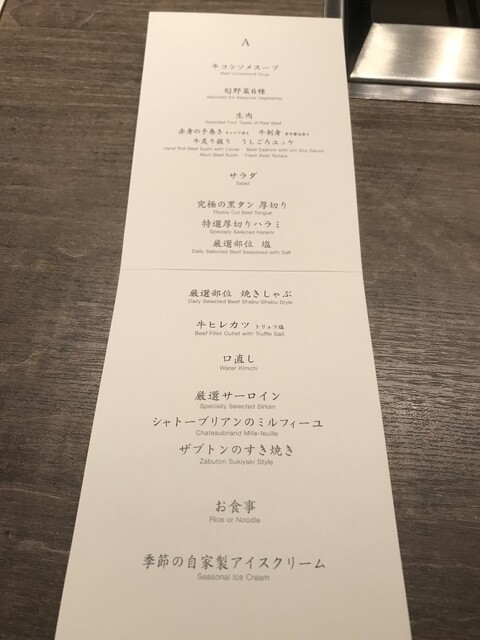 A
牛コンソメスープ
Beef Consommé Soup
旬野菜6種
Assorted Six Seasonal Vegetables
生肉
Assorted Four Types of Raw Beef
赤身の手巻き キャビア添え 牛刺身
牛炙り握り うしごろユッケ
Hand Roll Beef Sushi with Caviar Beef Sashimi with Uni Soy Sauce
Aburi Beef Sushi Fresh Beef Tartare
サラダ
Salad
究極の黒タン 厚切り
Thickly Cut Beef Tongue
特選厚切りハラミ
Specially Selected Harami
厳選部位 塩
Daily Selected Beef Seasoned with Salt
厳選部位 焼きしゃぶ
Daily Selected Beef Shabu-Shabu Style
牛ヒレカツ トリュフ塩
Beef Fillet Cutlet with Truffle Salt
口直し
Water Kimchi
厳選サーロイン
Specially Selected Sirloin
シャトーブリアンのミルフィーユ
Chateaubriand Mille-feuille
ザブトンのすき焼き
Zabuton Sukiyaki Style
お食事
Rice or Noodle
季節の自家製アイスクリーム
Seasonal Ice Cream